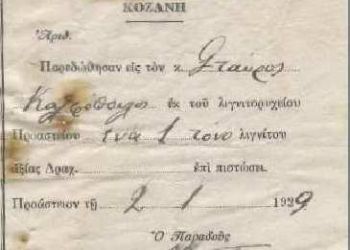 ΚΟΖΑΝΗ
Ἀριθ.
Παρεδώθησαν εἰς τὸν κ. Σταῦρος
ἐκ τοῦ λιγνιτορυχείου
Προαστείου ἕνα 1 τόνο λιγνίτου
ἀξίας Δραχ. ἐπὶ πιστώσει.
Προάστειον τῇ 2 1 1929
Ὁ Παραδοὺς